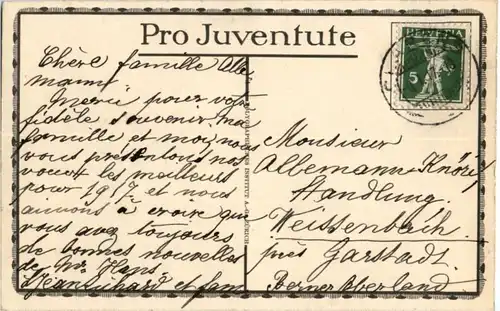 Pro Juventute
HELVETIA
5
Chère famille Alle
mann!
Merci pour votre
fidèle souvenir, ma
famille et moi, nous
vous présentons nos
voeux les meilleurs
pour 1917 et nous
aimons à croire que
vous avez toujours
de bonnes nouvelles
de Mr Hans.
et fam
Monsieur
Allemann-Knöri
Handlung.
Weissenbach
près Garstadt.
Berner Oberland.